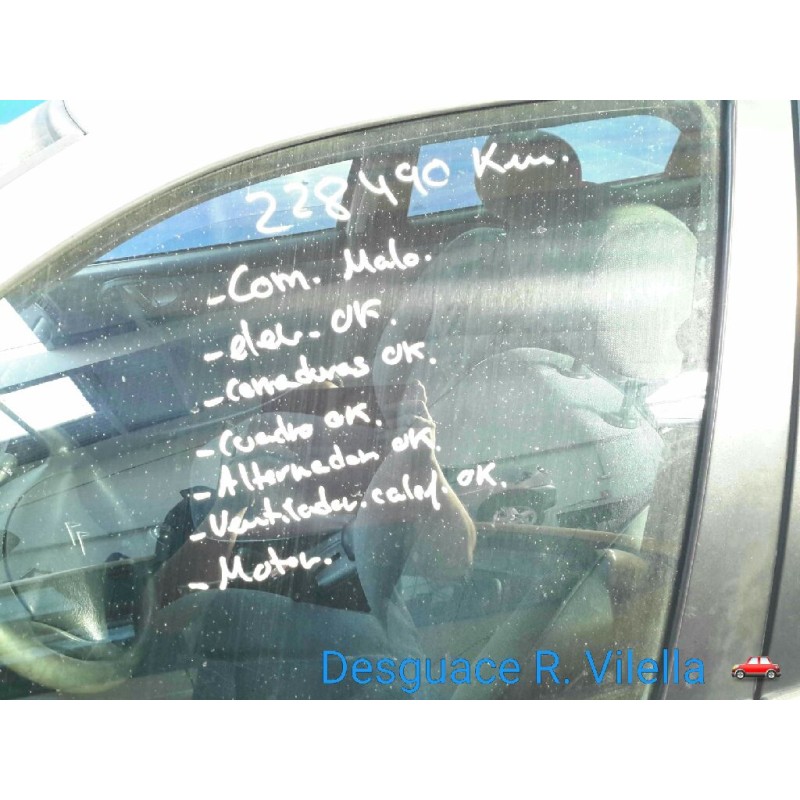 228490 Km.
- Com. Malo.
- elev. OK.
- Cerraduras OK.
- Cuadro OK.
- Alternador OK.
- Ventilador. calef. OK.
- Motor.
Desguace R. Vilella